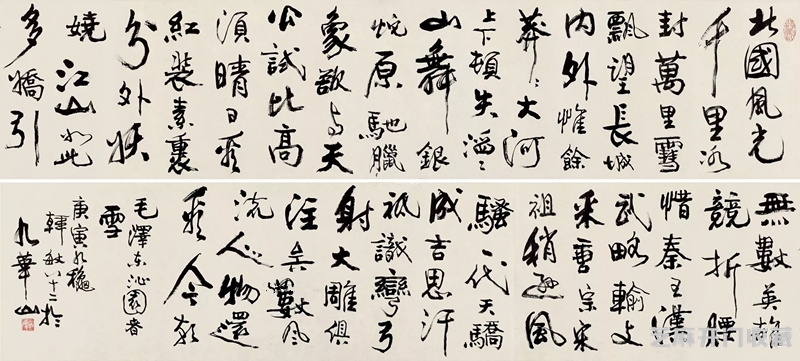 北國風光
千里冰
封萬里雪
飄望長城
内外惟餘
莽〻大河
上下頓失滔〻
山舞銀
蛇原馳臘
象欲与天
公試比高
須晴日看
紅裝素裹
分外妖
嬈江山如此
多嬌引
無數英雄
競折腰
惜秦皇漢
武略輸文
采唐宗宋
祖稍遜風
騷一代天驕
成吉思汗
祗識彎弓
射大雕俱
往矣數風
流人物還
看今朝
毛澤東沁園春
雪
庚寅九穐
韓敏八十二於
九華山